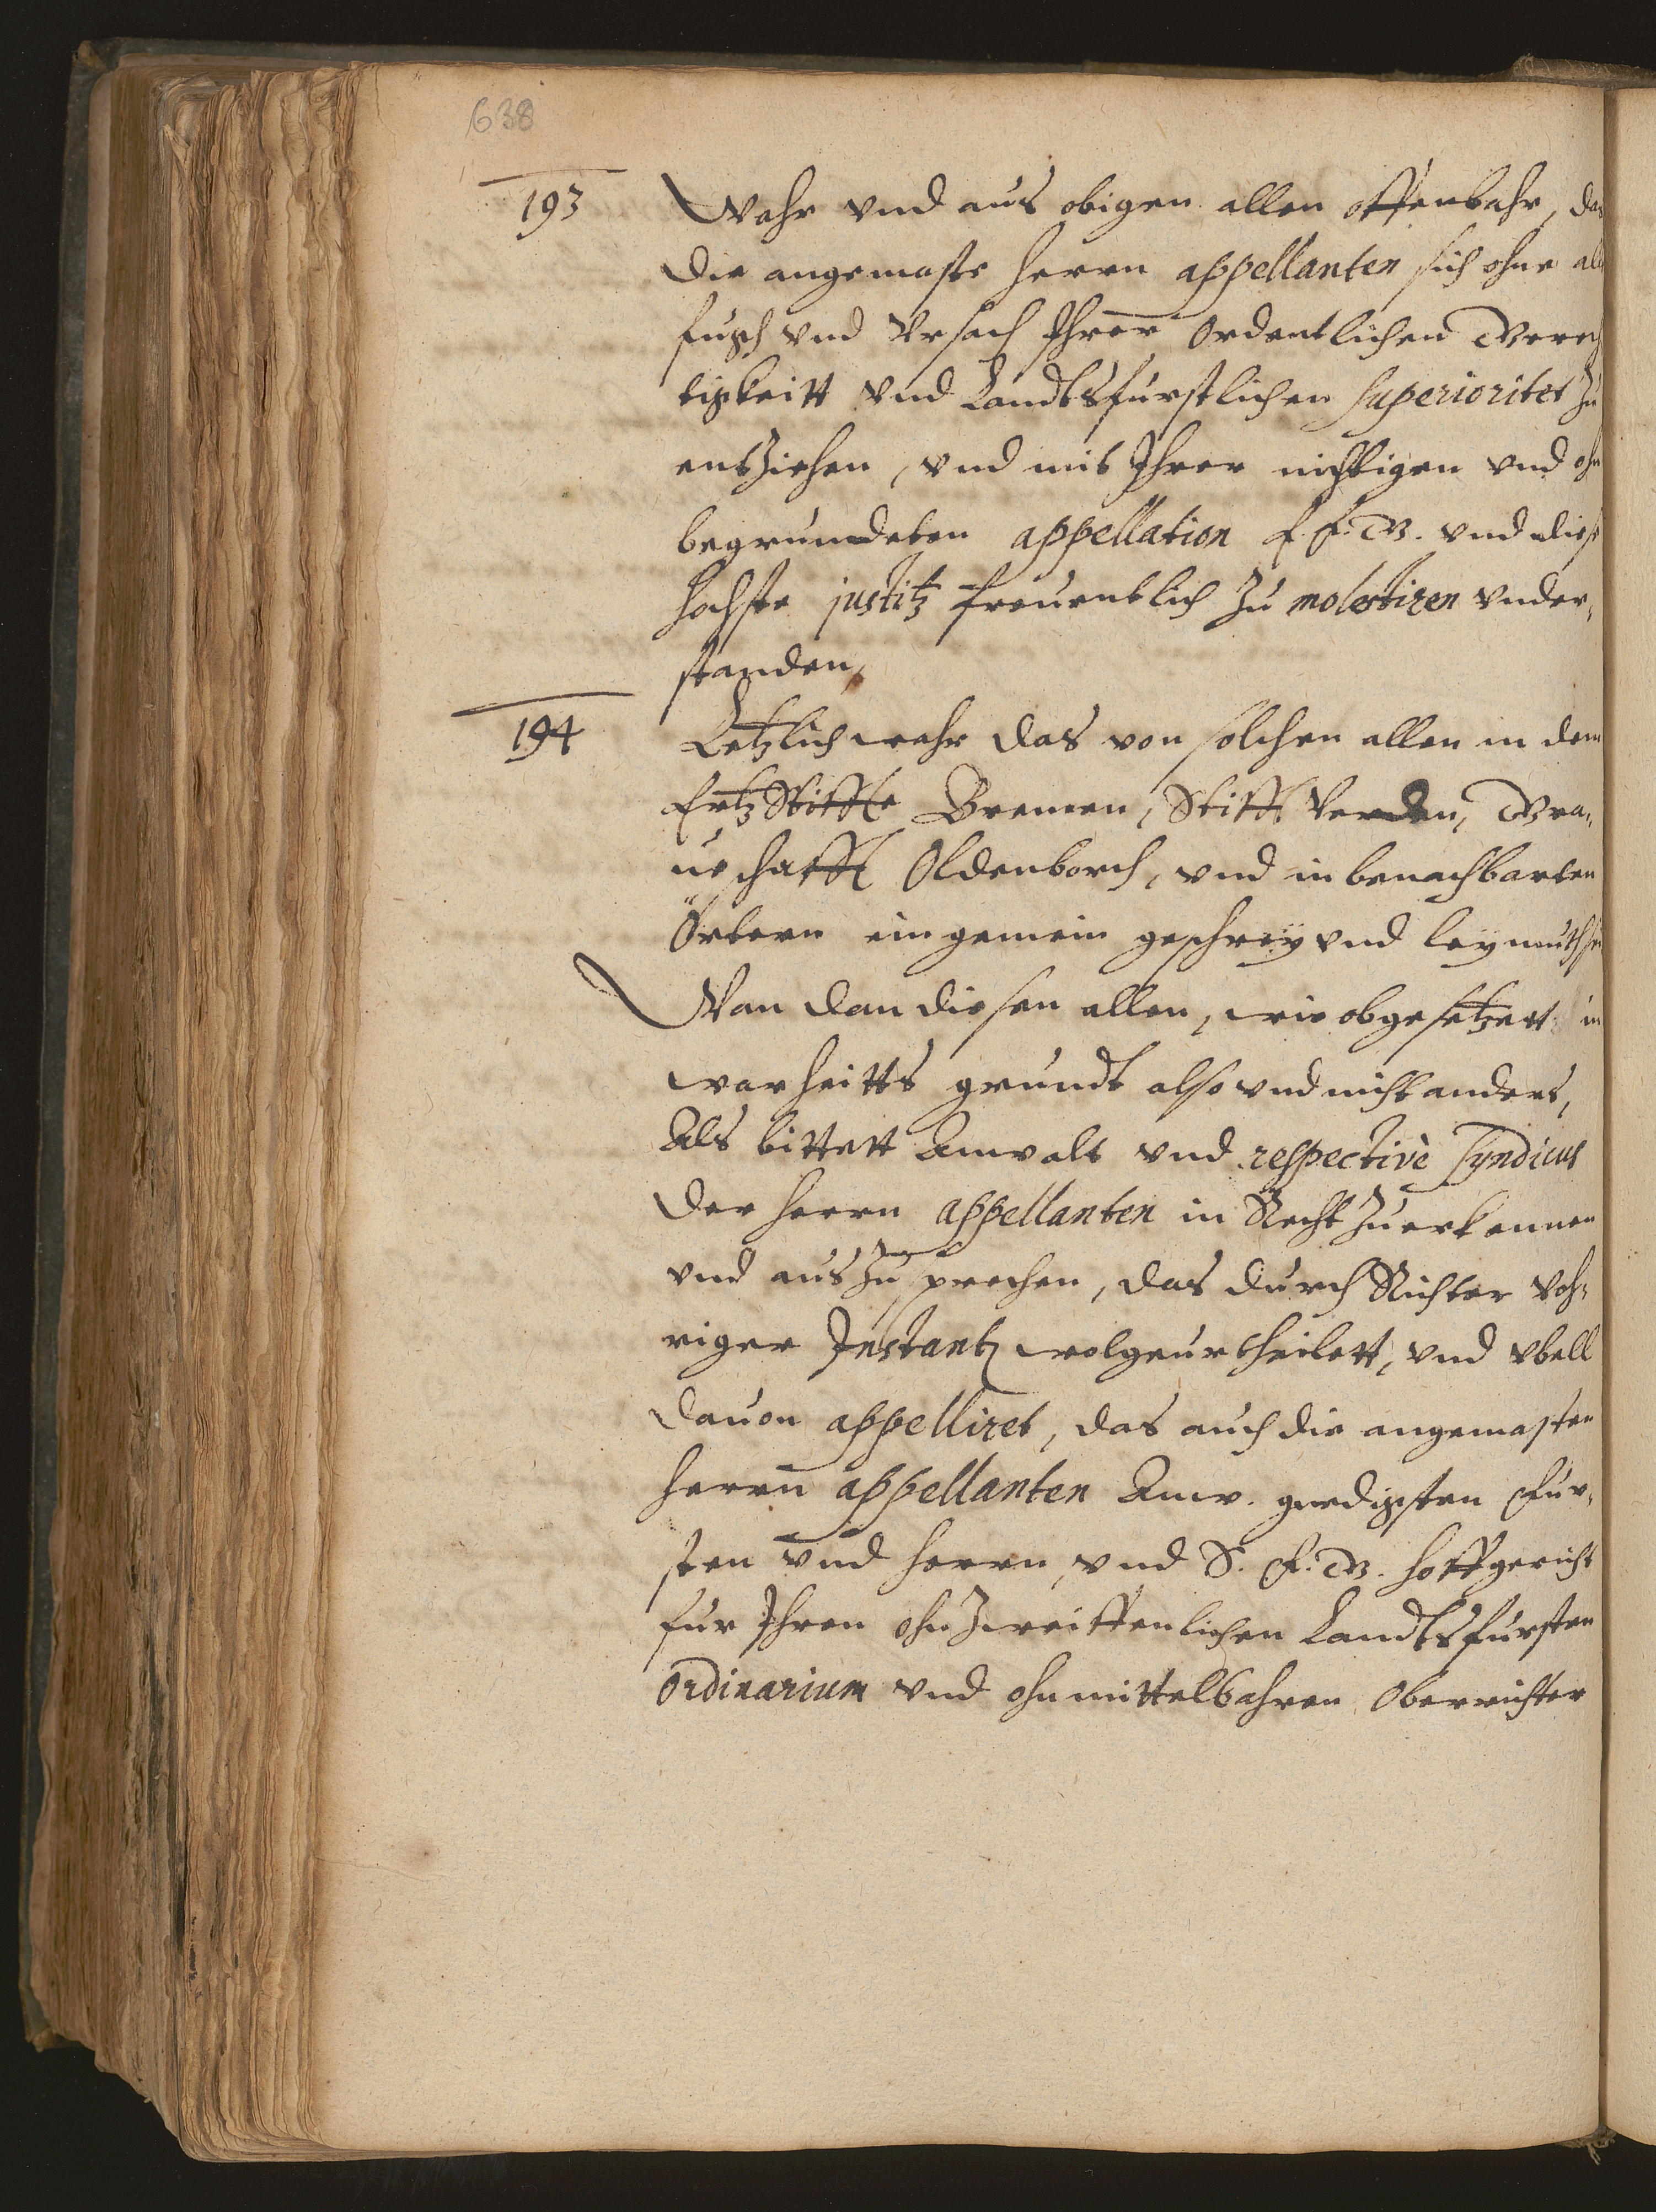 638
193 Wahr vnd aus obigen allen offenbahr, das
die angemaste Herrn appellanten sich ohne alle
fugh vnd Vrsach Ihrer ordentlichen Gerech
tigkeitt vnd Landtsfurstlichen superioritet zu
entziehen, vnd mit Ihrer nichtigen vnd ohn
begrundeten appellation E. F. G. vnd diese
hochste justitz freuentlich zu molestiren vnder,
standen,
194 Letzlich wahr das von solchen allen in dem
Ertz Stiffte Bremen, Stifft Verden, Gra,
ueschafft Oldenborch, vnd in benachbarten
Örtern ein gemein geschrey vnd leymuth sei
Wan dan diesen allen, wie obgesetzett in
warheitts grundt also vnd nicht anders,
Als bittett Anwalt vnd respectivè Syndicus
der Herrn appellanten in Recht zuerkennen
vnd aus zu sprechen, das durch Richter Voh,
riger Instantz wolgeurtheilett, vnd vbell
dauon appelliret, das auch die angemasten
Herrn appellanten Anw. gnedigsten Fur,
sten vnd Herrn vnd S. F. G. Hoffgericht
fur Ihren ohnzweiffenlichen Landtsfursten
Ordinarium vnd ohnmittelbahren Oberrichter